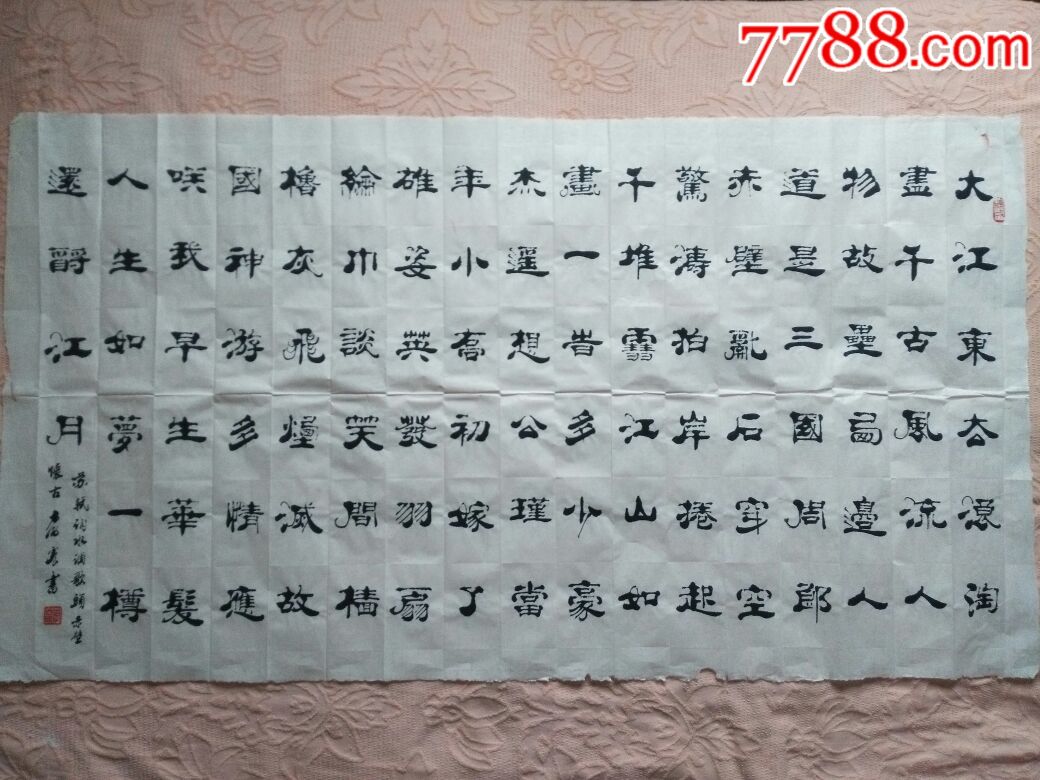 7788.com
大江東去浪淘
盡千古風流人
物故壘西邊人
道是三國周郎
赤壁亂石穿空
驚濤拍岸捲起
千堆雪江山如
畫一旹多少豪
杰遥想公瑾當
年小喬初嫁了
雄姿英發羽扇
綸巾談笑間檣
櫓灰飛煙滅故
國神游多情應
咲我早生華髮
人生如夢一樽
還酹江月
苏軾詞水调歌頭 赤壁
懷古 書